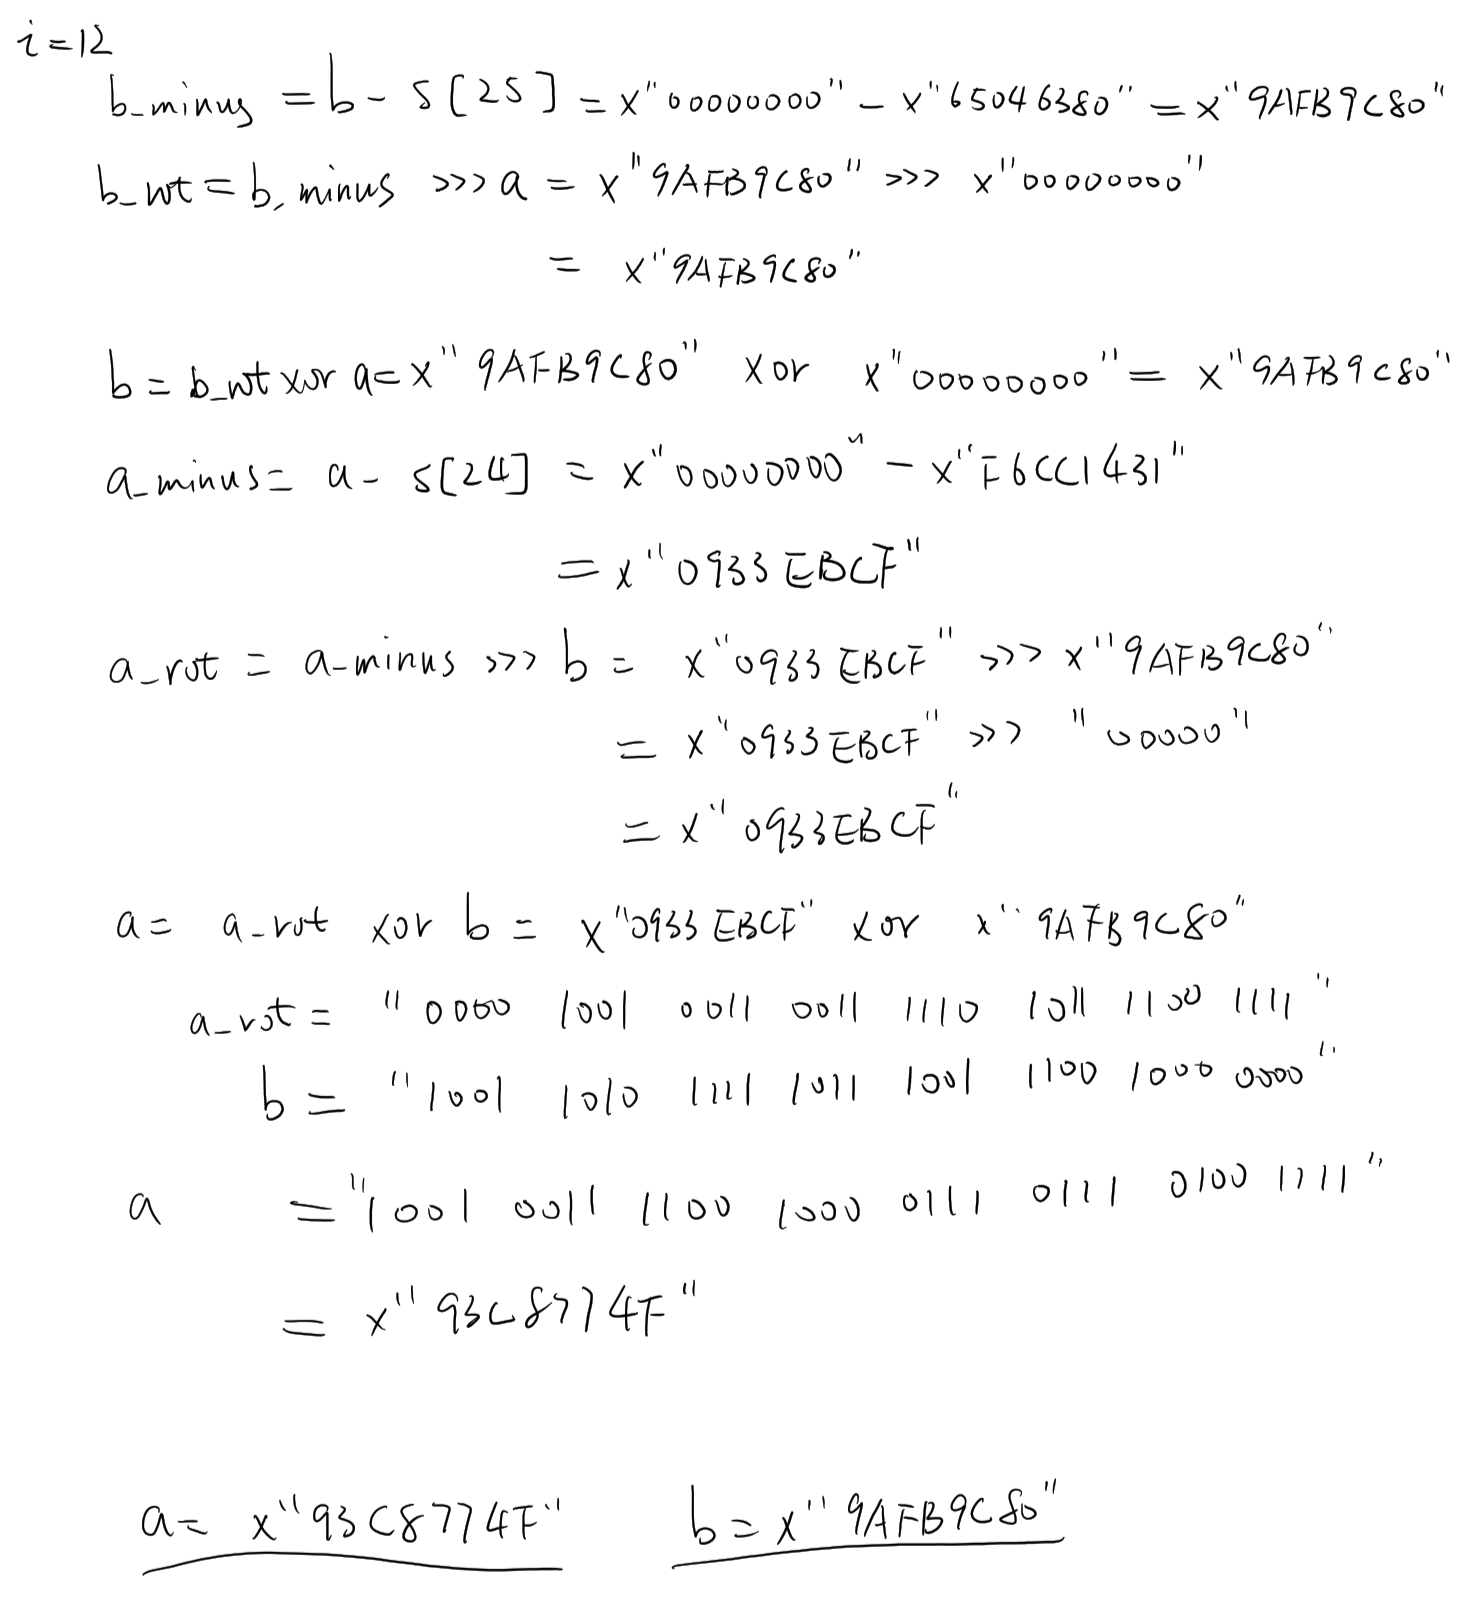 i=12
b_minus = b - S[25] = x"00000000" - x"65046380" = x"9AFB9C80"
b_rot = b_minus >>> a = x"9AFB9C80" >>> x"00000000"
= x"9AFB9C80"
b = b_rot xor a = x"9AFB9C80" xor x"00000000" = x"9AFB9C80"
a_minus = a - S[24] = x"00000000" - x"F6CC1431"
= x"0933EBCF"
a_rot = a_minus >>> b = x"0933EBCF" >>> x"9AFB9C80"
= x"0933EBCF" >>> "00000"
= x"0933EBCF"
a = a_rot xor b = x"0933EBCF" xor x"9AFB9C80"
a_rot = "0000 1001 0011 0011 1110 1011 1100 1111"
b = "1001 1010 1111 1011 1001 1100 1000 0000"
a = "1001 0011 1100 1000 0111 0111 0100 1111"
= x"93C8774F"
a = x"93C8774F" b = x"9AFB9C80"